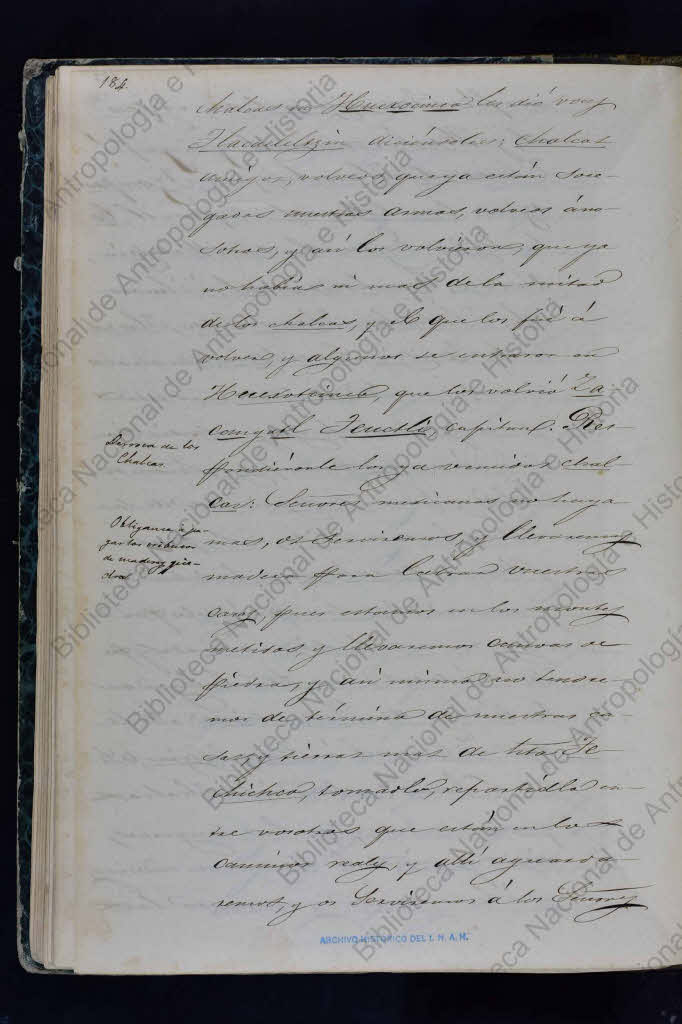 184.
chalcas en Huexocinco les dió voces
Tlacaeleltzin diciéndoles: chalcas
amigos, volveos, que ya están sose-
gadas nuestras armas, volveos á no-
sotros, y así los volvieron, que ya
no habia ni mas de la mitad
de los chalcas, y el que los fué á
volver, y algunos se entraron en
Huexotcinco, que los volvió Za-
capan Teuctli, capitan. Res-
pondiéronle los ya vencidos chal-
cas: Señores mexicanos no haya
mas, os serviremos, y llevaremos
madera para labrar vuestras
casas, pues estamos en los montes
metidos, y llevaremos canoas de
piedra, y así mismo no tene-
mos de término de nuestras ca-
sas, y tierras mas de hta. Te-
chichco, tomadlo, repartidlo en-
tre vosotros que están en los
caminos reales, y allí aguarda-
remos, y os serviremos á los Señores
Derrota de los
Chalcas.
Obliganse á pa-
gar los tributos
de madera y pie-
dra
ARCHIVO HISTORICO DEL I. N. A. H.
Biblioteca Nacional de Antropología e Historia